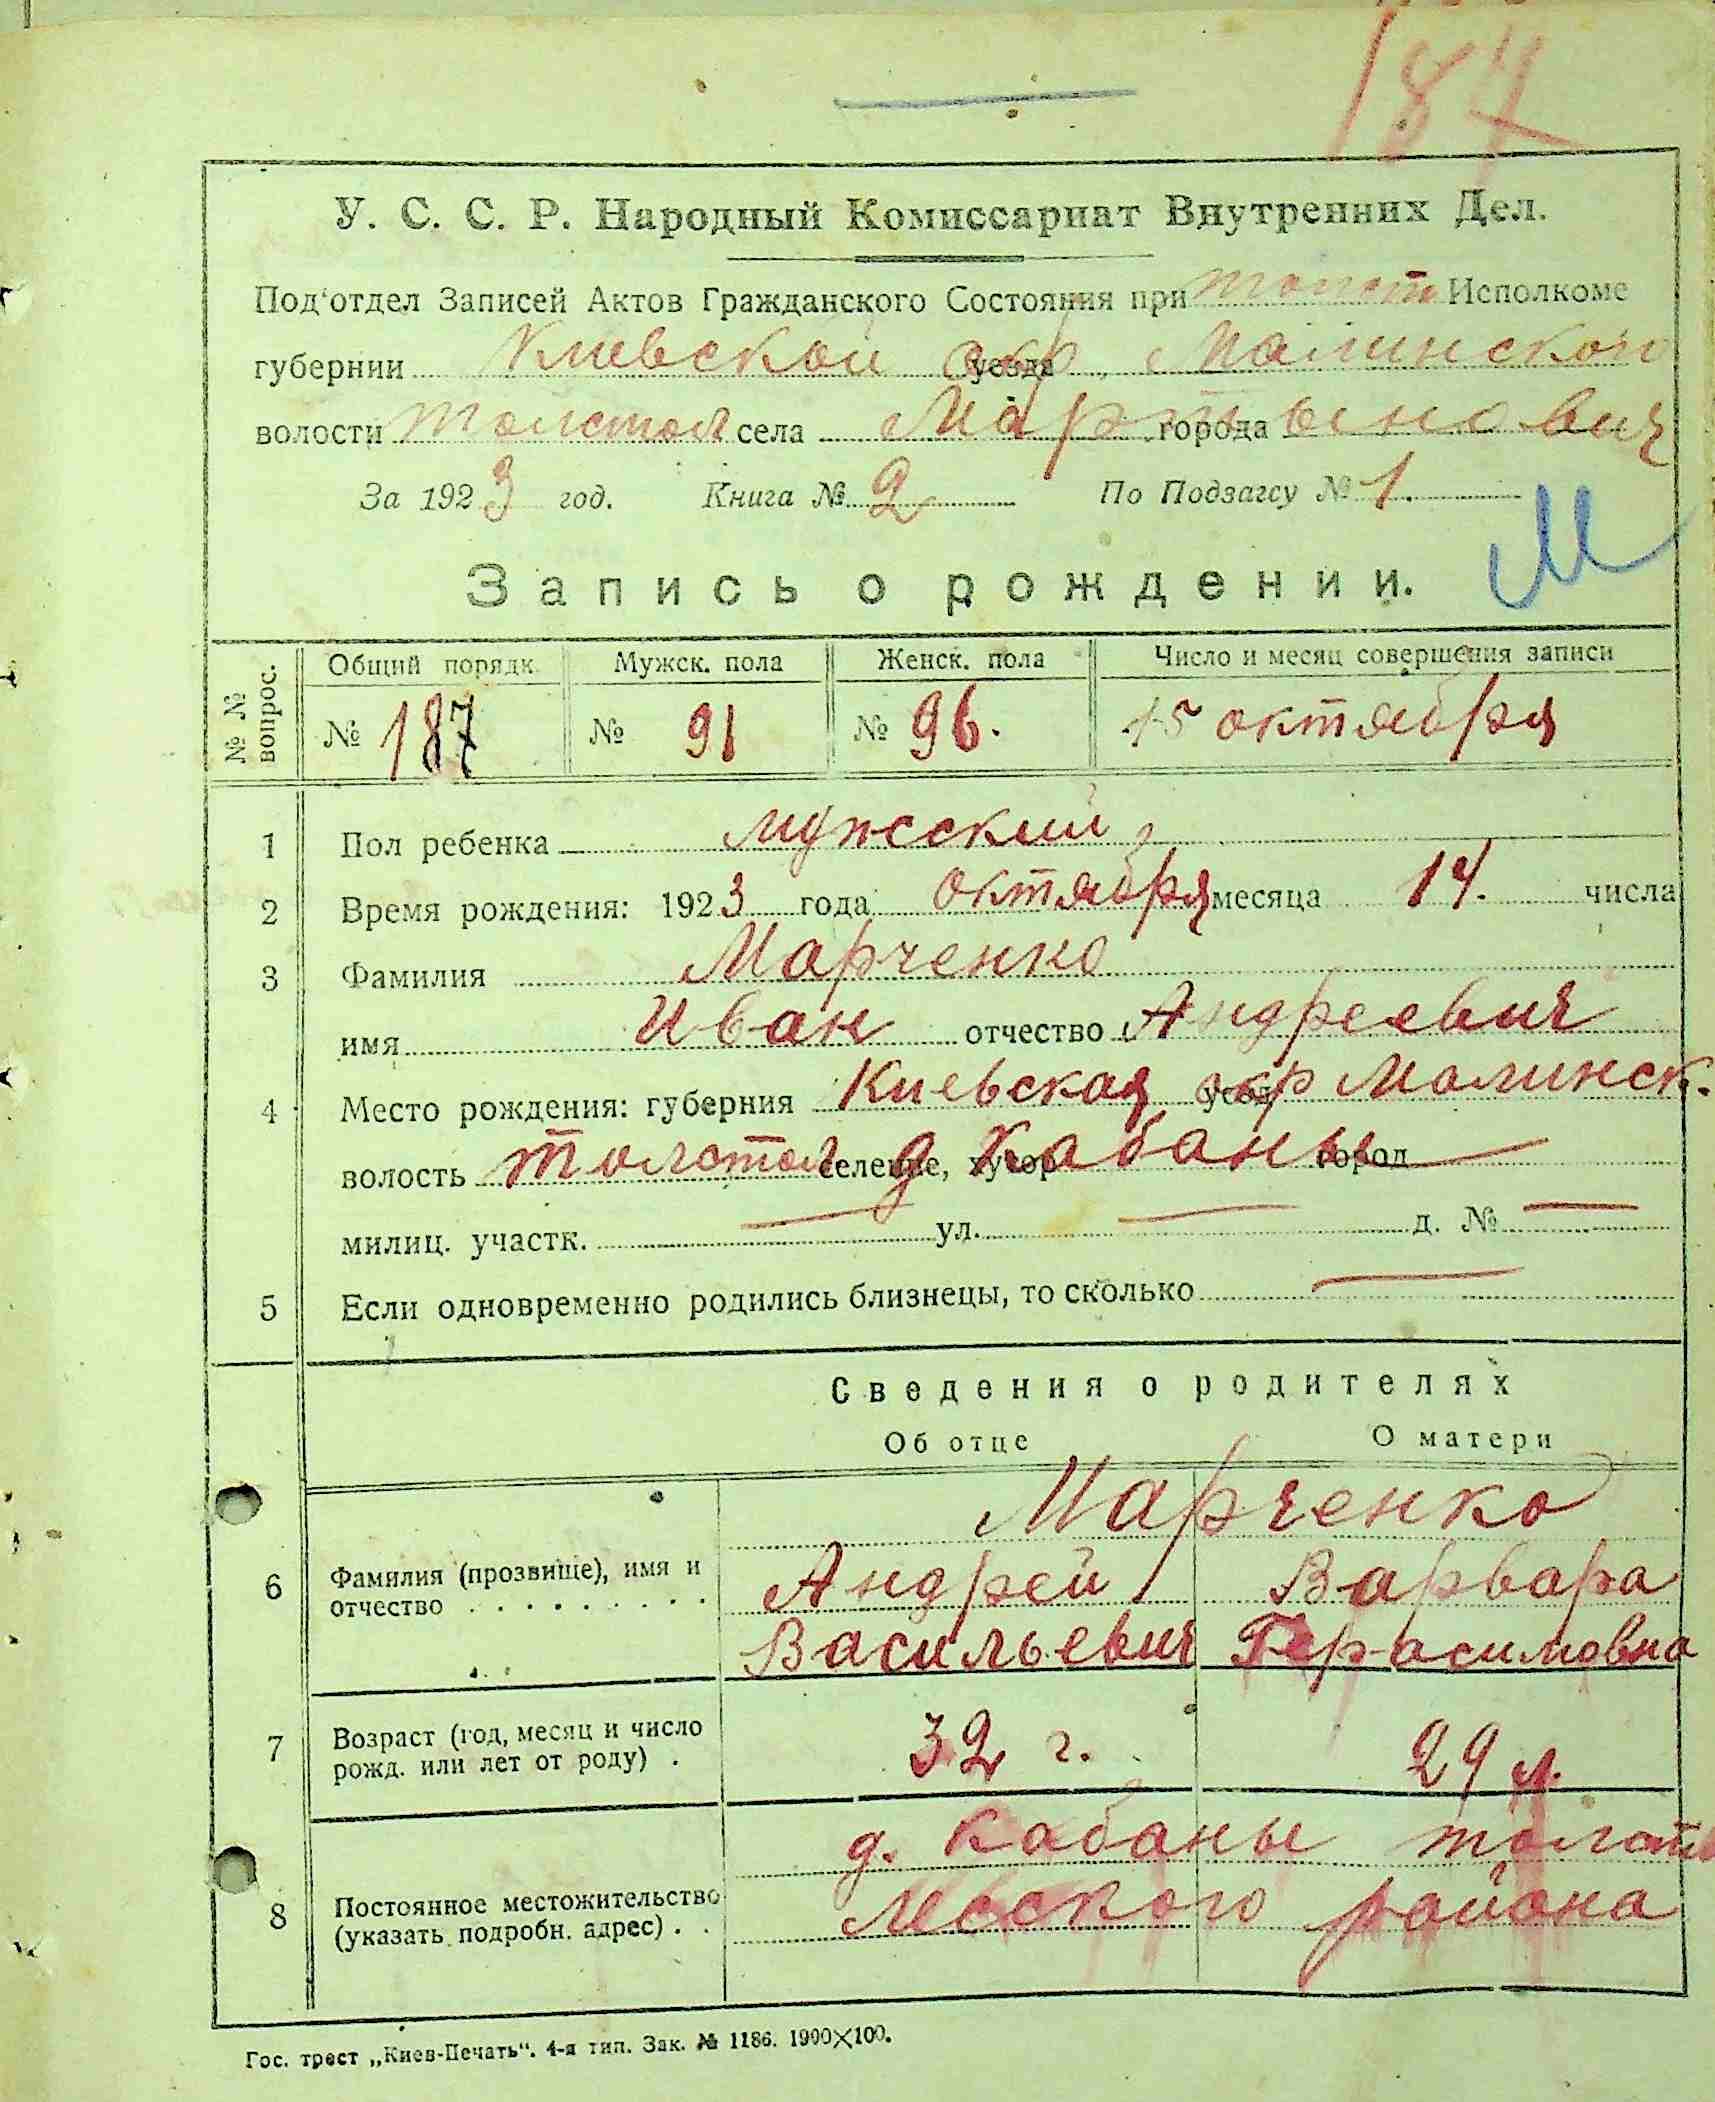 184
У. С. С. Р. Народный Комиссариат Внутренних Дел.
Под'отдел Записей Актов Гражданского Состояния при толст Исполкоме
губернии Киевской уезда окр, Малинской
волости толстол села города Мартынович
За 1923 год. Книга № 2 По Подзагсу № 1.
М
Запись о рождении.
№ № вопрос. Общий порядк. Мужск. пола Женск. пола Число и месяц совершения записи
№ 187 № 91 № 96. 15 октября
1 Пол ребенка мужский
2 Время рождения: 1923 года октября месяца 14. числа
3 Фамилия Марченко
имя Иван отчество Андреевич
4 Место рождения: губерния Киевская уезд окр Малинск.
волость толстол селение, хутор д Кабаны город
милиц. участк. ул. д. №
5 Если одновременно родились близнецы, то сколько
Сведения о родителях
Об отце О матери
Марченко
6 Фамилия (прозвище), имя и Андрей Варвара
отчество . . . . . . . . . Васильевич Герасимовна
7 Возраст (год, месяц и число 32 г. 29 л.
рожд. или лет от роду) .
д. Кабаны толсто
8 Постоянное местожительство лесского района
(указать подробн. адрес) . .
Гос. трест „Киев-Печать“. 4-я тип. Зак. № 1186. 1900×100.